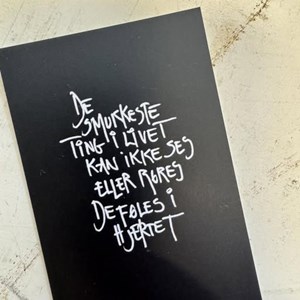 DE
SMUKKESTE
TING I LIVET
KAN IKKE SES
ELLER RØRES
DE FØLES I
HJERTET